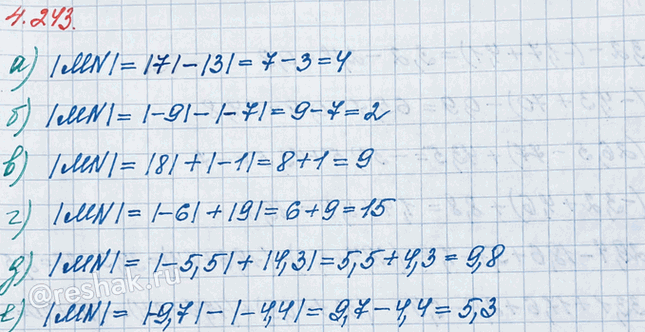 4.243.
а) |MN| = |7| - |3| = 7 - 3 = 4
б) |MN| = |-9| - |-7| = 9 - 7 = 2
в) |MN| = |8| + |-1| = 8 + 1 = 9
г) |MN| = |-6| + |9| = 6 + 9 = 15
д) |MN| = |-5,5| + |4,3| = 5,5 + 4,3 = 9,8
@reshak.ru
е) |MN| = |-9,7| - |-4,4| = 9,7 - 4,4 = 5,3